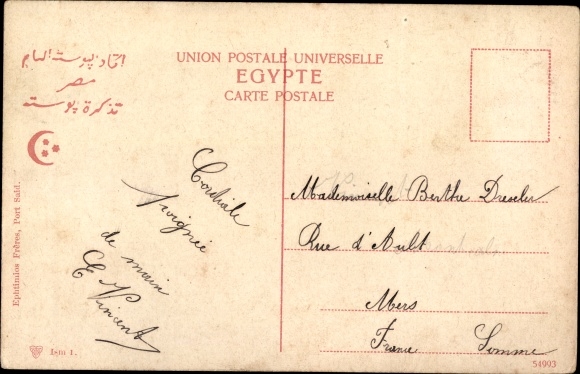 اتحاد پوستة العام
مصر
تذكرة پوسته
UNION POSTALE UNIVERSELLE
EGYPTE
CARTE POSTALE
Ephtimios Frères, Port Saïd.
Cordiale
Poignée
de main
E Vincent
Mademoiselle Berthe Dresler
Rue d'Ault
Mers
France Somme
54993